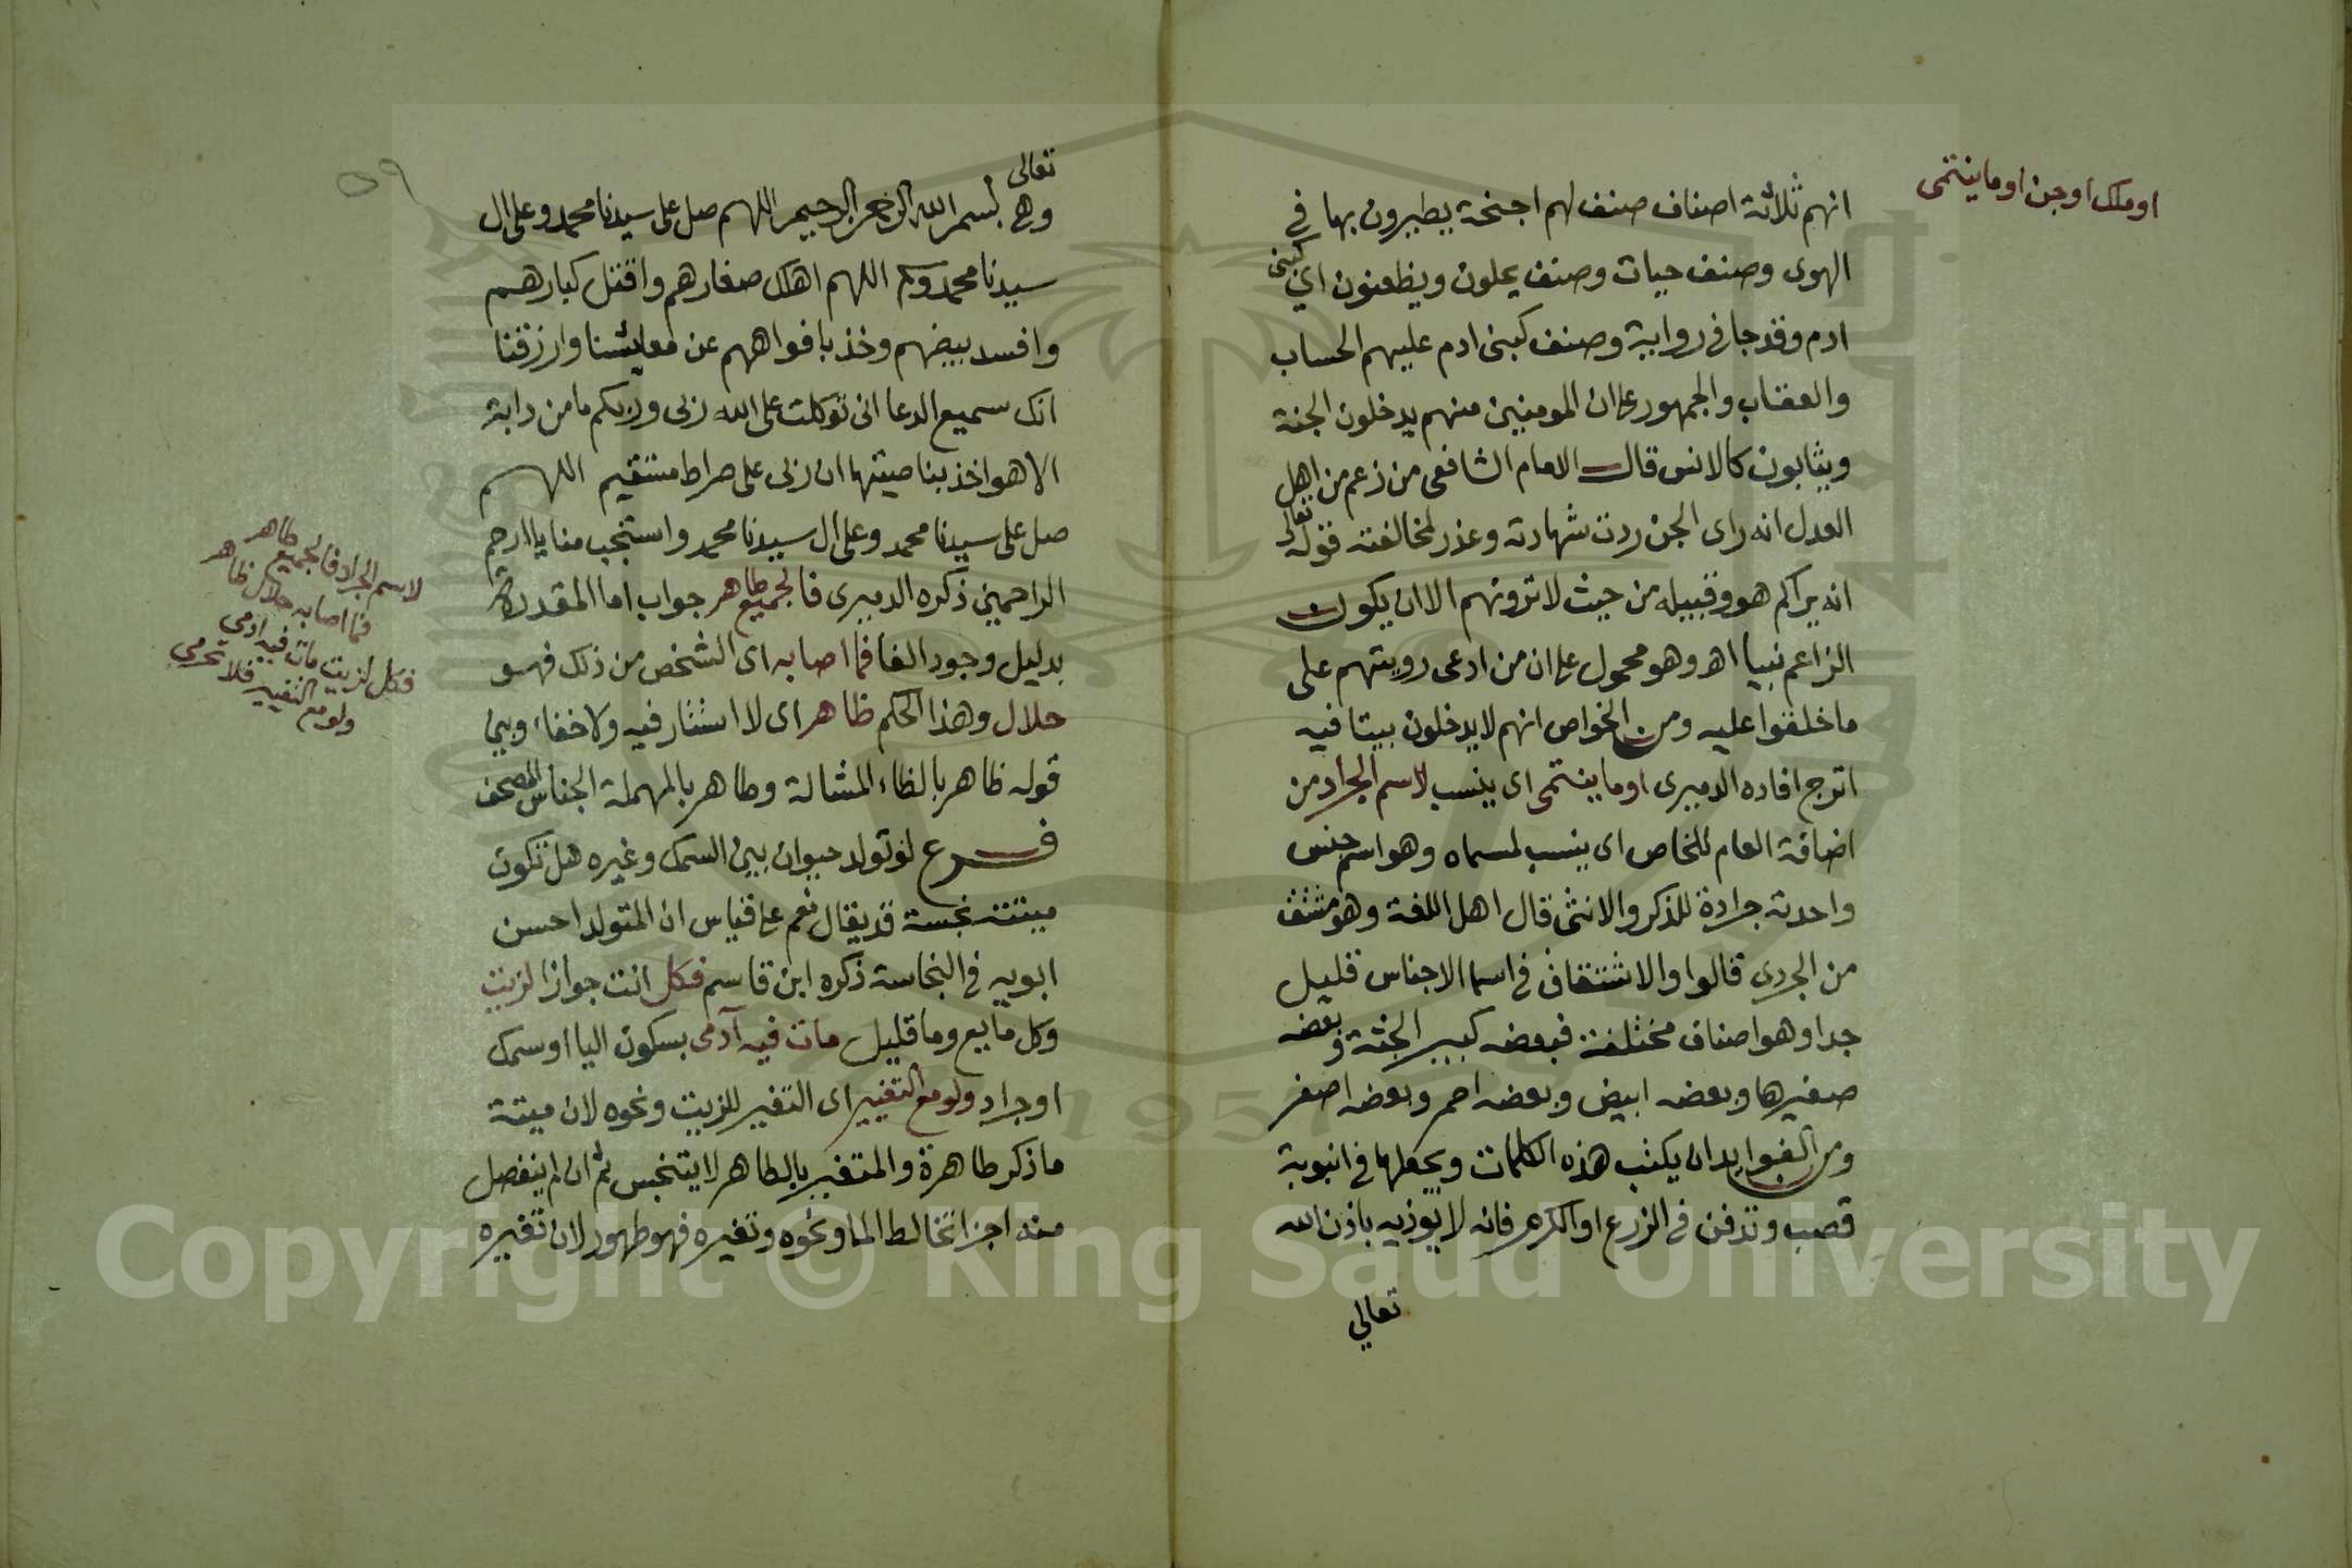 او ملك او جن او ما ينتمى
انهم ثلاثة اصناف صنف لهم اجنحة يطيرون بها في
الهوى وصنف حيات وصنف يحلون ويظعنون اي كبنى
ادم وقد جا فى رواية وصنف كبنى ادم عليهم الحساب
والعقاب والجمهور على ان المومنين منهم يدخلون الجنة
ويثابون كالانس قال الامام الشافعى من زعم من اهل
العدل انه راى الجن ردت شهادته وعذر لمخالفته قوله تعالى
انه يراكم هو وقبيله من حيث لا ترونهم الا ان يكون
الزاعم نبيا اهـ وهو محمول على ان من ادعى رويتهم على
ما خلقوا عليه ومن الخواص انهم لا يدخلون بيتا فيه
اترج افاده الدميرى او ما ينتمى اى ينسب لاسم الجراد من
اضافة العام للخاص اى ينسب لمسماه وهو اسم جنس
واحدته جرادة للذكر والانثى قال اهل اللغة وهو مشتق
من الجرد قالوا والاشتقاق فى اسما الاجناس قليل
جدا وهو اصناف مختلفة فبعضه كبير الجثة وبعضه
صغيرها وبعضه ابيض وبعضه احمر وبعضه اصفر
ومن الفوايد ان يكتب هذه الكلمات ويجعلها فى انبوبة
قصب وتدفن فى الزرع او الكرم فانه لا يوذيه باذن الله
تعالي
٥٩
تعالى
وهى بسم الله الرحمن الرحيم اللهم صل على سيدنا محمد وعلى ال
سيدنا محمد وسلم اللهم اهلك صغارهم واقتل كبارهم
وافسد بيضهم وخذ بافواههم عن معايشنا وارزقنا
انك سميع الدعا انى توكلت على الله ربى وربكم ما من دابة
الا هو اخذ بناصيتها ان ربى على صراط مستقيم اللهم
صل على سيدنا محمد وعلى ال سيدنا محمد واستجب منا يا ارحم
الراحمين ذكره الدميرى فالجميع طاهر جواب اما المقدرة
بدليل وجود الفا فما اصابه اى الشخص من ذلك فهو
حلال وهذا الحكم ظاهر اى لا استتار فيه ولا خفاء وبين
قوله ظاهر بالظاء المشالة وطاهر بالمهملة الجناس المصحف
فرع لو تولد حيوان بين السمك وغيره هل تكون
ميتته نجسة قد يقال نعم على قياس ان المتولد احسن
ابويه فى النجاسة ذكره ابن قاسم فكل انت جوازا لزيت
وكل مايع وما قليل مات فيه آدمى بسكون اليا او سمك
او جراد ولو مع التغيير اى التغير للزيت ونحوه لان ميتة
ما ذكر طاهرة والمتغير بالطاهر لا يتنجس ثم ان لم ينفصل
منه اجزا تخالط الما ونحوه وتغيره فهو طهور لان تغيره
لاسم الجراد فالجميع طاهر
فما اصابه حلال ظاهر
فكل لزيت مات فيه ادمى
ولو مع التغيير فلا تحرمى
Copyright © King Saud University
1957